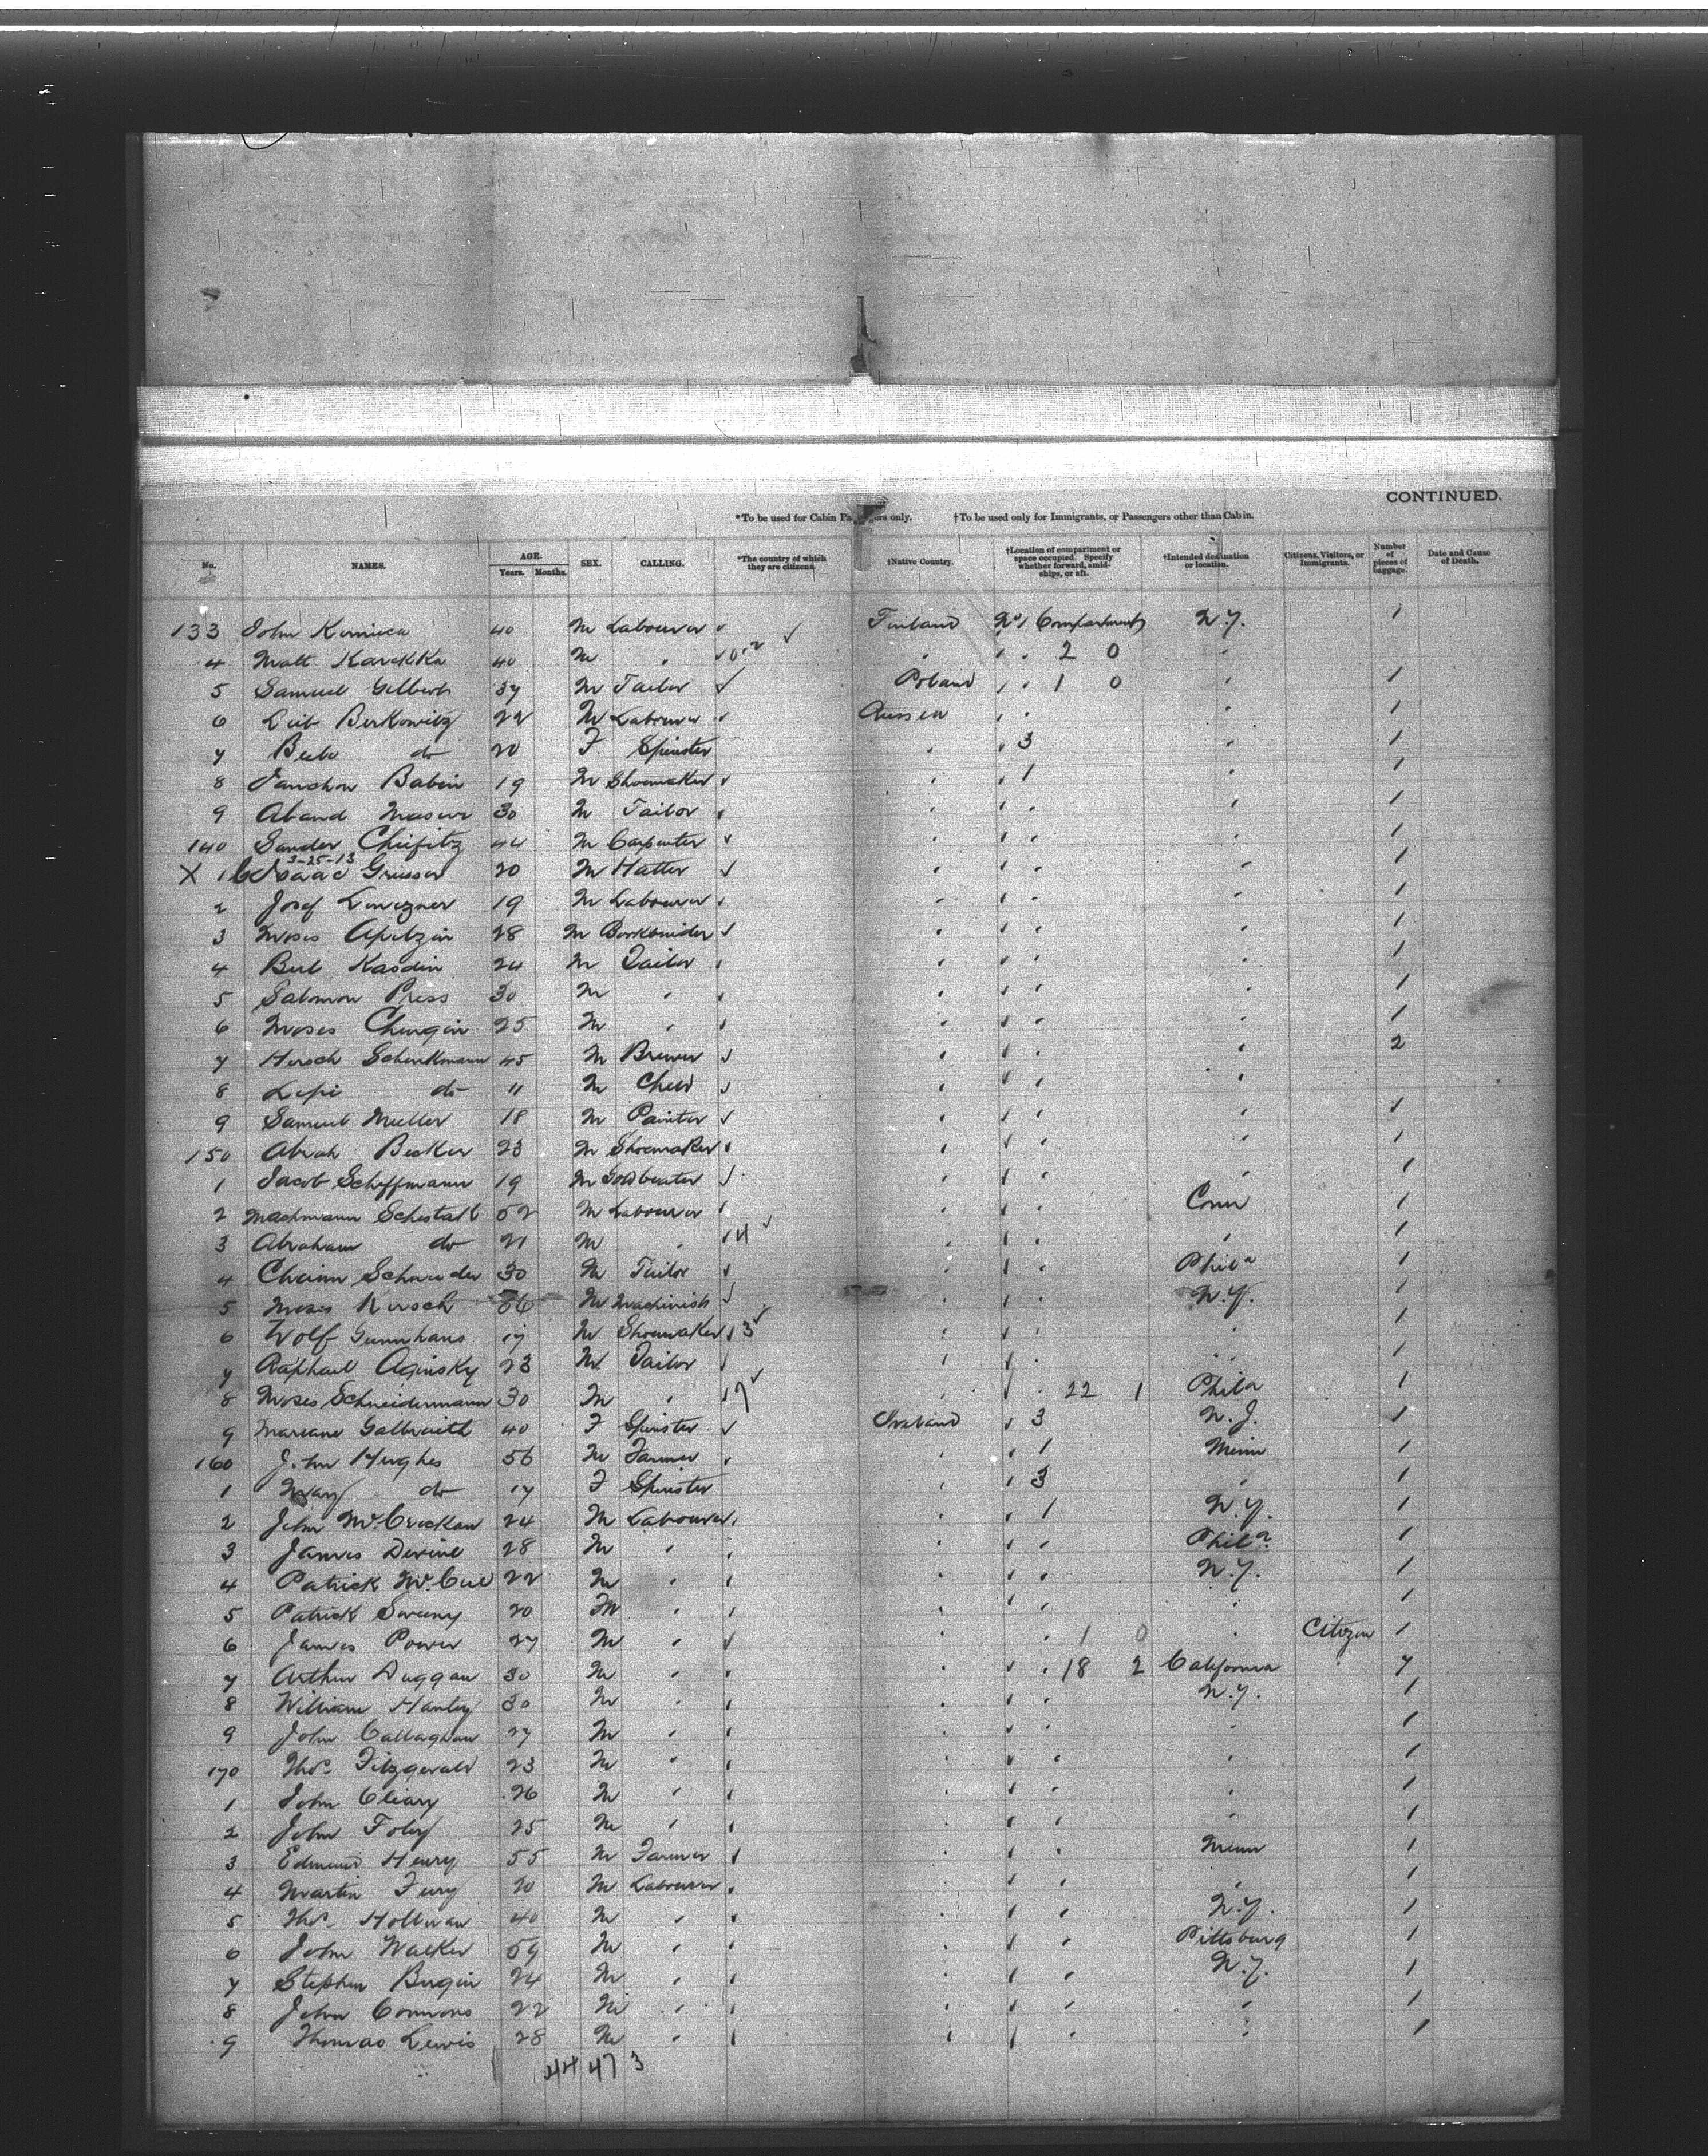 CONTINUED.
*To be used for Cabin Passengers only. †To be used only for Immigrants, or Passengers other than Cabin.
No. NAMES. AGE. Years. Months. SEX. CALLING. *The country of which they are citizens. †Native Country. †Location of compartment or space occupied. Specify whether forward, amidships, or aft. †Intended destination or location. Citizens, Visitors, or Immigrants. Number of pieces of baggage. Date and Cause of Death.
133 John 40 M Labourer ✓ Finland No 1 Compartment N.Y. 1
4 Matt Karekka 40 M " " " 2 0 "
5 Samuel Gilbert 37 M Tailor ✓ Poland " " 1 0 " 1
6 Leib Berkowitz 22 M Labourer Russia " " " 1
7 Beile do 20 F Spinster " " 3 " 1
8 Babin 19 M Shoemaker " " 1 " 1
9 Masur 30 M Tailor " " " " 1
140 Sander Cheifitz 44 M Carpenter " " " " 1
3-25-13
X 1 Isaac Grusser 20 M Hatter ✓ " " " " 1
2 Josef 19 M Labourer " " " " 1
3 Moses 28 M Bookbinder ✓ " " " " 1
4 Kasdin 24 M Tailor " " " " 1
5 Salomon Press 30 M " " " " " 1
6 Moses Churgin 25 M " " " " " 1
7 Hersch Schenkmann 45 M Brewer ✓ " " " " 2
8 do 11 M Child ✓ " " " "
9 Samuel Muller 18 M Painter ✓ " " " " 1
150 Abrah Becker 23 M Shoemaker " " " " 1
1 Jacob Schiffmann 19 M Goldbeater ✓ " " " " 1
2 Nachmann 52 M Labourer " " " Conn 1
3 Abraham do 21 M " 4 ✓ " " " " 1
4 Chaim Schneider 30 M Tailor " " " Phila 1
5 Moses Kirsch 36 M Machinist ✓ " " " N.Y. 1
6 Wolf 17 M Shoemaker 3 ✓ " " " " 1
7 Raphael Aginsky 23 M Tailor ✓ " " " " 1
8 Moses Schneidermann 30 M " 7 ✓ " " " 22 1 Phila 1
9 Mariane Galbraith 40 F Spinster ✓ Ireland " 3 N.J. 1
160 John Hughes 56 M Farmer " " 1 Minn 1
1 Mary do 17 F Spinster " " 3 " 1
2 John McCrickan 24 M Labourer " " 1 N.Y. 1
3 James Devine 28 M " " " " Phila. 1
4 Patrick McCue 22 M " " " " N.Y. 1
5 Patrick Sweeny 20 M " " " " " 1
6 James Power 27 M " ✓ " " 1 0 " Citizen 1
7 Arthur Duggan 30 M " " " " 18 2 California 7
8 William Hanley 30 M " " " " N.Y. 1
9 John Callaghan 27 M " " " " " 1
170 Thos. Fitzgerald 23 M " " " " " 1
1 John Cleary 26 M " " " " " 1
2 John Foley 25 M " " " " " 1
3 Edmund Henry 55 M Farmer " " " Minn 1
4 Martin Fury 20 M Labourer " " " " 1
5 Thos. 40 M " " " " N.Y. 1
6 John Walker 59 M " " " " Pittsburg 1
7 Stephen Bergin 24 M " " " " N.Y. 1
8 John Connors 22 M " " " " " 1
9 Thomas Lewis 28 M " " " " " 1
44 47 3